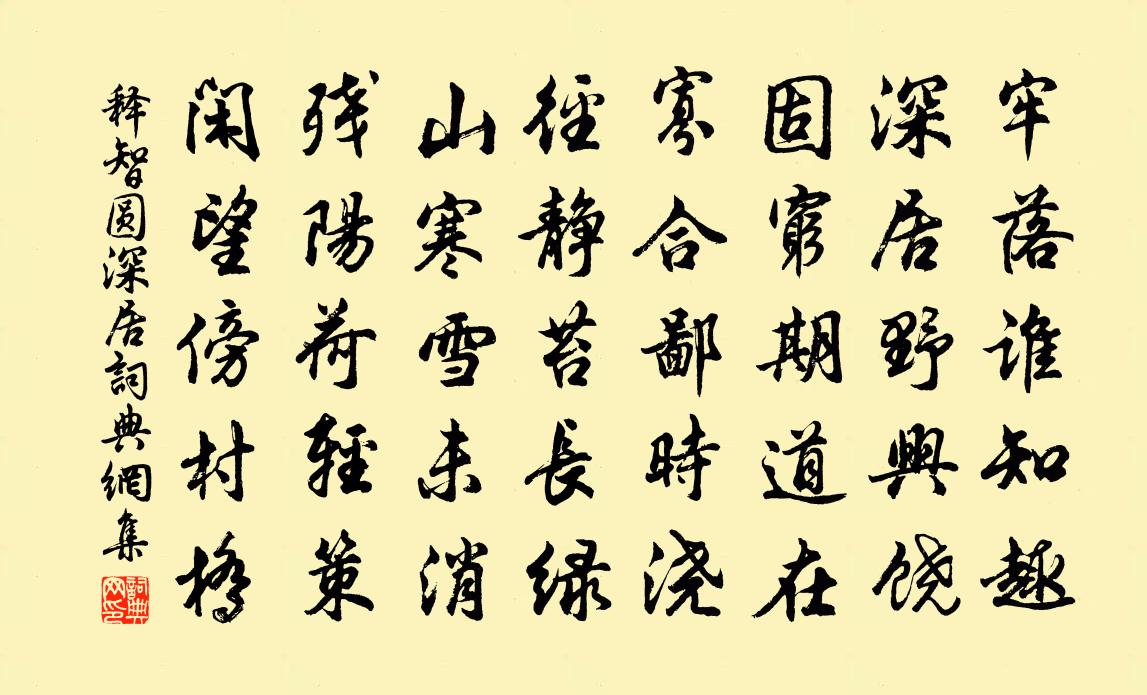 牢落谁知趣
深居野興饶
固窮期道在
寡合鄙時浇
徑静苔長绿
山寒雪未消
残陽荷輕策
閑望傍村橋
释智圆深居詞典網集
詞典网印